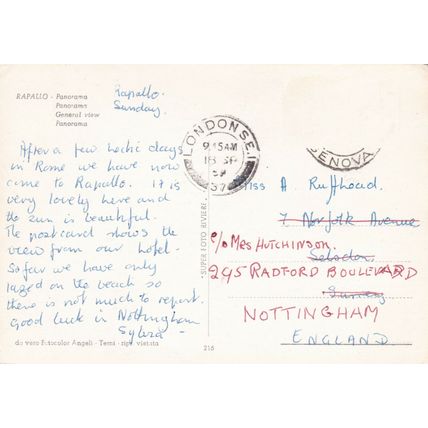 RAPALLO - Panorama
Panorama
General view
Panorama
Rapallo.
Sunday.
After a few hectic days
in Rome we have now
come to Rapallo. It is
very lovely here and
the sun is beautiful.
The postcard shows the
view from our hotel.
So far we have only
lazed on the beach so
there is not much to report.
Good luck in Nottingham
Sylvia -
da vero Fotocolor Angeli - Terni - rip. vietata
216
"SUPER FOTO RIVIERE"
LONDON S.E.1
9.15AM
18 SP
59
37
GENOVA
Miss A. Ruffhead.
7 Norfolk Avenue
c/o MRS HUTCHINSON.
Selsdon.
295 RADFORD BOULEVARD
Surrey
NOTTINGHAM
ENGLAND